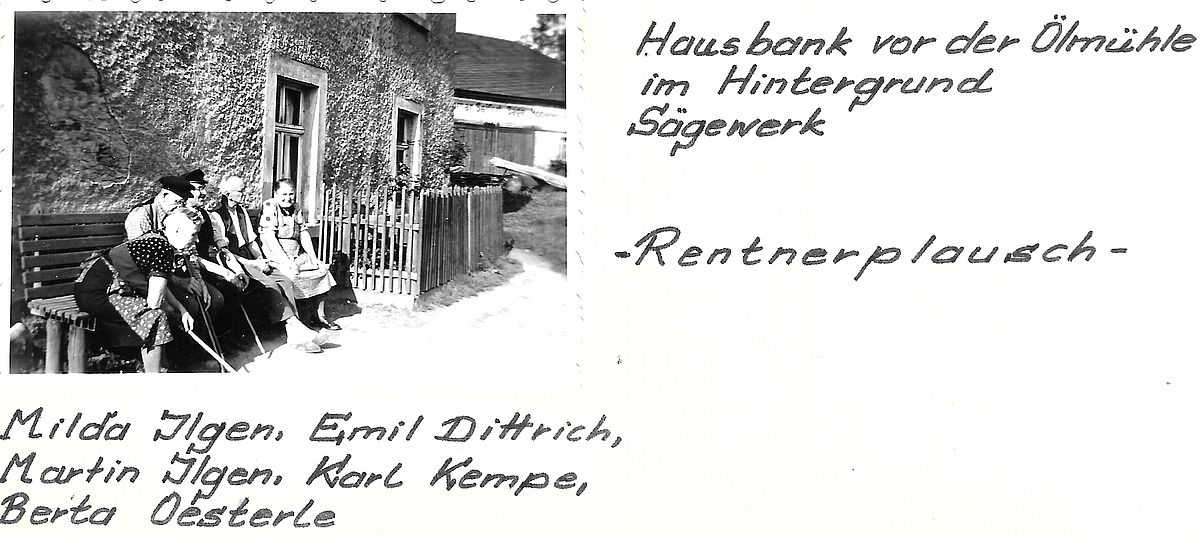 Hausbank vor der Ölmühle
im Hintergrund
Sägewerk
-Rentnerplausch-
Milda Ilgen, Emil Dittrich,
Martin Ilgen, Karl Kempe,
Berta Oesterle